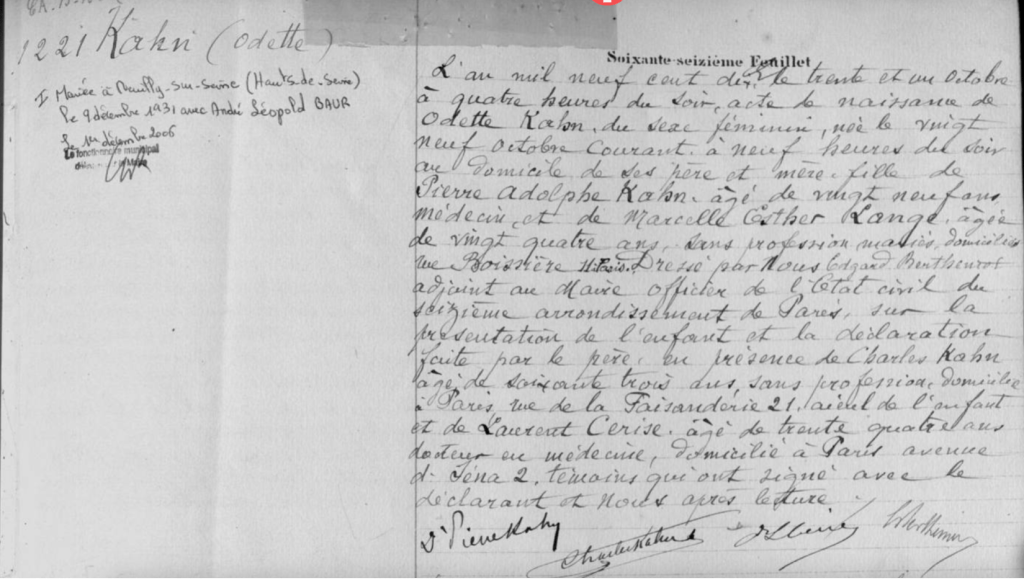 1221 Kahn (Odette)
I Mariée à Neuilly-sur-Seine (Hauts-de-Seine)
le 9 décembre 1931 avec André Léopold BAUR
Le 1er décembre 2006
Le fonctionnaire municipal
Soixante-seizième Feuillet
L'an mil neuf cent dix, le trente et un octobre
à quatre heures du soir, acte de naissance de
Odette Kahn, du sexe féminin, née le vingt
neuf octobre courant à neuf heures du soir
au domicile de ses père et mère, fille de
Pierre Adolphe Kahn, âgé de vingt neuf ans,
médecin, et de Marcelle Esther Lange, âgée
de vingt quatre ans, sans profession, mariés, domiciliés
rue Boissière Dressé par Nous Edgard
adjoint au Maire officier de l'Etat civil du
seizième arrondissement de Paris, sur la
présentation de l'enfant et la déclaration
faite par le père, en présence de Charles Kahn
âgé de soixante trois ans, sans profession, domicilié
à Paris, rue de la Faisanderie 21, aïeul de l'enfant
et de Laurent Cerise, âgé de trente quatre ans
docteur en médecine, domicilié à Paris avenue
d'Iéna 2, témoins qui ont signé avec le
déclarant et Nous après lecture
Dr Pierre Kahn Charles Kahn